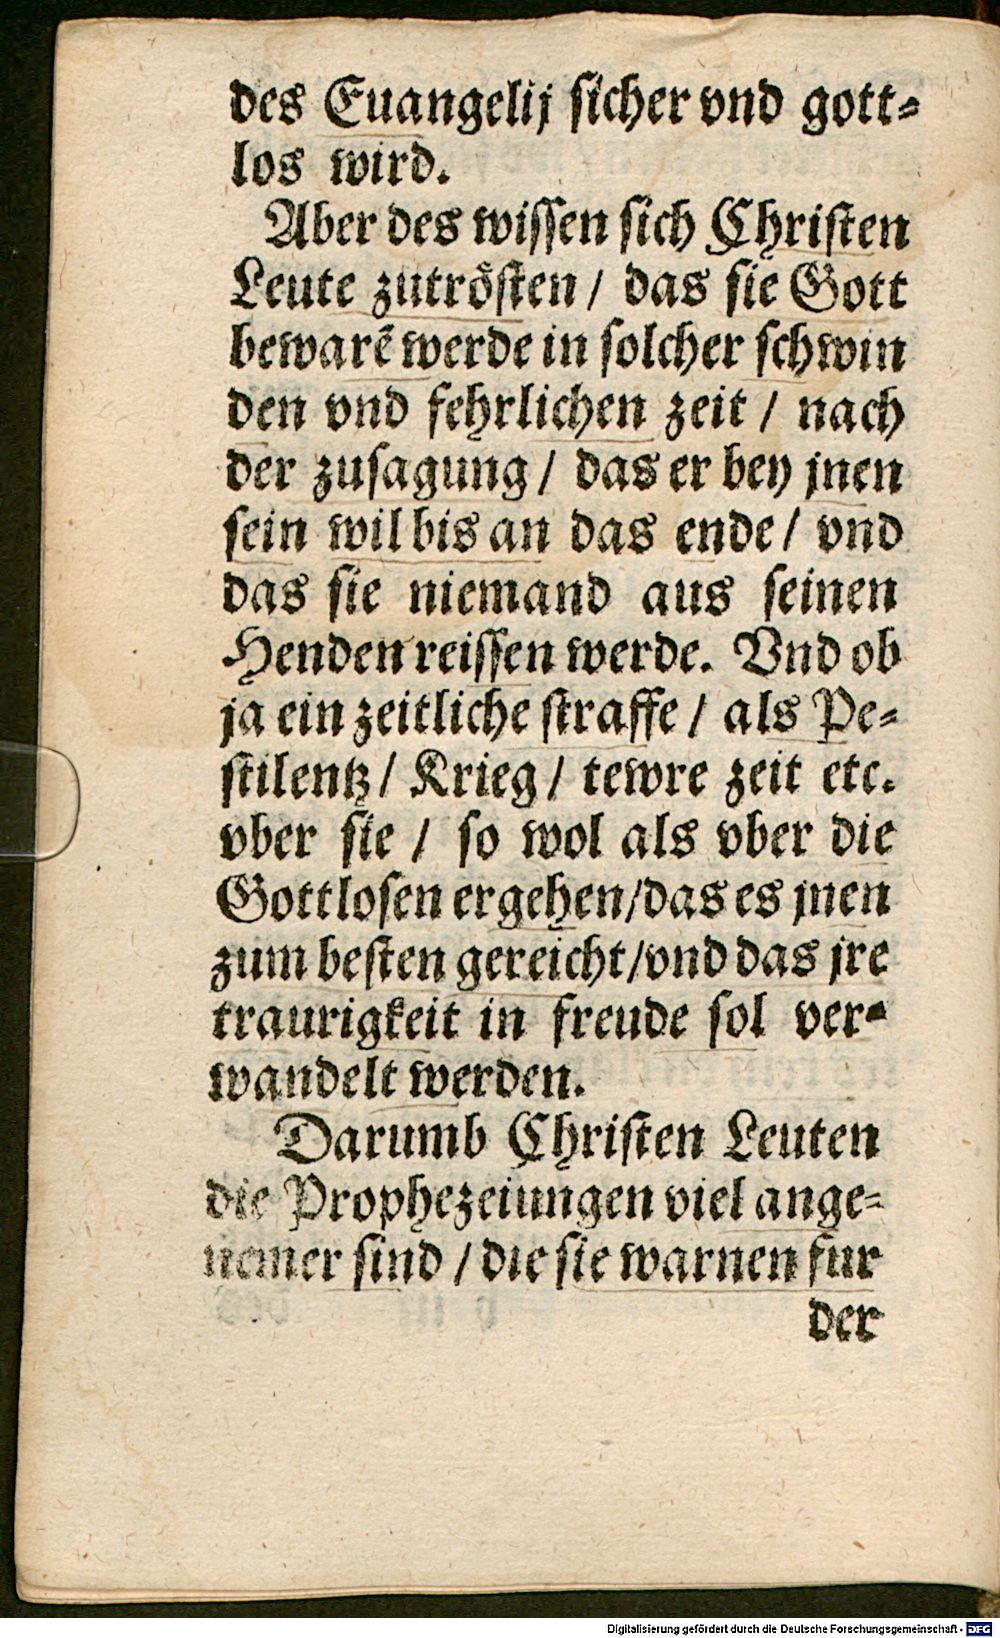 des Euangelij sicher vnd gott⸗
los wird.
Aber des wissen sich Christen
Leute zutrösten / das sie Gott
bewarē werde in solcher schwin
den vnd fehrlichen zeit / nach
der zusagung / das er bey jnen
sein wil bis an das ende / vnd
das sie niemand aus seinen
Henden reissen werde. Vnd ob
ja ein zeitliche straffe / als Pe⸗
stilentz / Krieg / tewre zeit etc.
vber sie / so wol als vber die
Gottlosen ergehen / das es jnen
zum besten gereicht / vnd das jre
traurigkeit in freude sol ver⸗
wandelt werden.
Darumb Christen Leuten
die Prophezeiungen viel ange⸗
nemer sind / die sie warnen fur
der
Digitalisierung gefördert durch die Deutsche Forschungsgemeinschaft - DFG